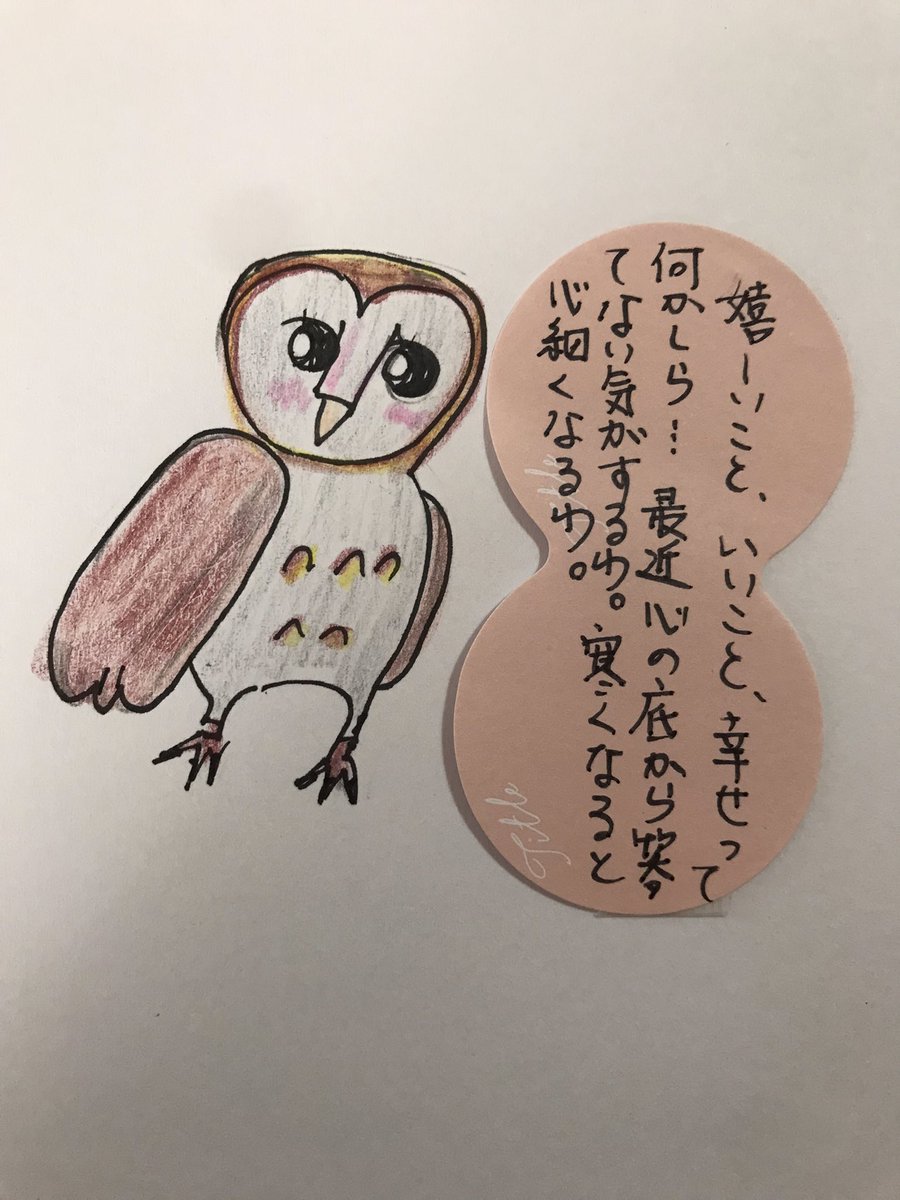 嬉しいこと、いいこと、幸せって
何かしら… 最近心の底から笑っ
てない気がするわ。寒くなると
心細くなるわ。
Title